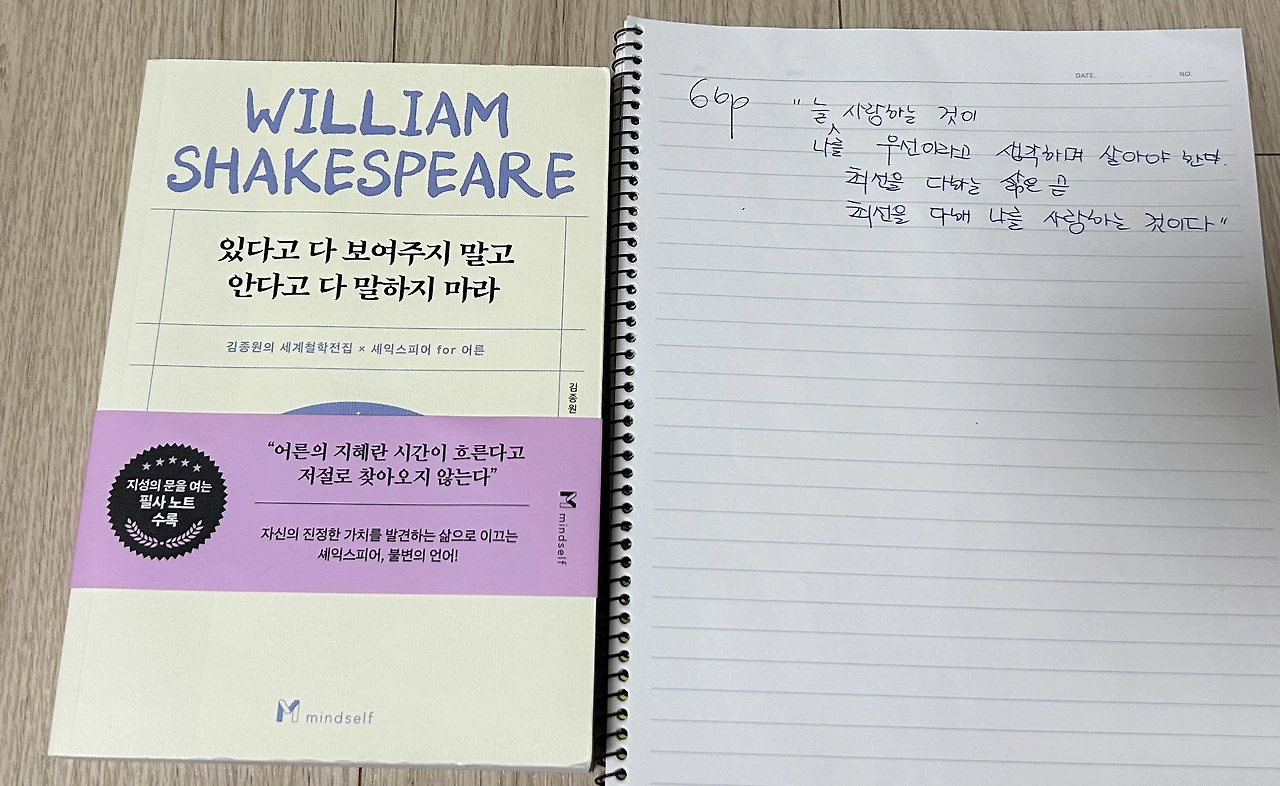 WILLIAM
SHAKESPEARE
있다고 다 보여주지 말고
안다고 다 말하지 마라
김종원의 세계철학전집 × 셰익스피어 for 어른
김종원
“어른의 지혜란 시간이 흐른다고
저절로 찾아오지 않는다”
지성의 문을 여는
필사 노트
수록
자신의 진정한 가치를 발견하는 삶으로 이끄는
셰익스피어, 불변의 언어!
mindself
mindself
DATE.
NO.
66p
"늘 사랑하는 것이
나를 우선이라고 생각하며 살아야 한다.
최선을 다하는 삶은 곧
최선을 다해 나를 사랑하는 것이다"